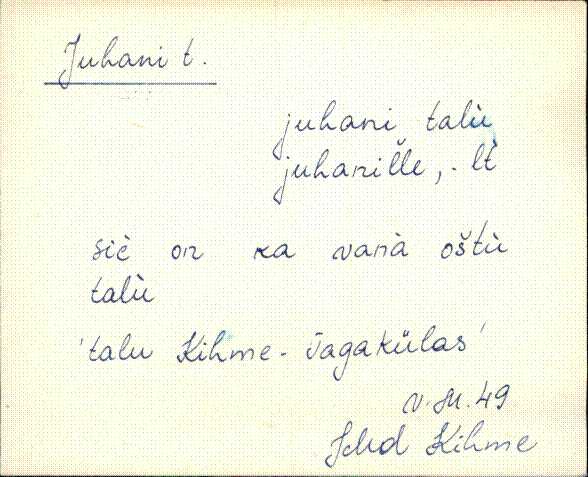 Juhani t.
juhani talù
juhaniľľe, - lt̀
siè on ka vanà oštù
talù
'talu Kihme - Jagakülas'
V. M. 49
Kihme